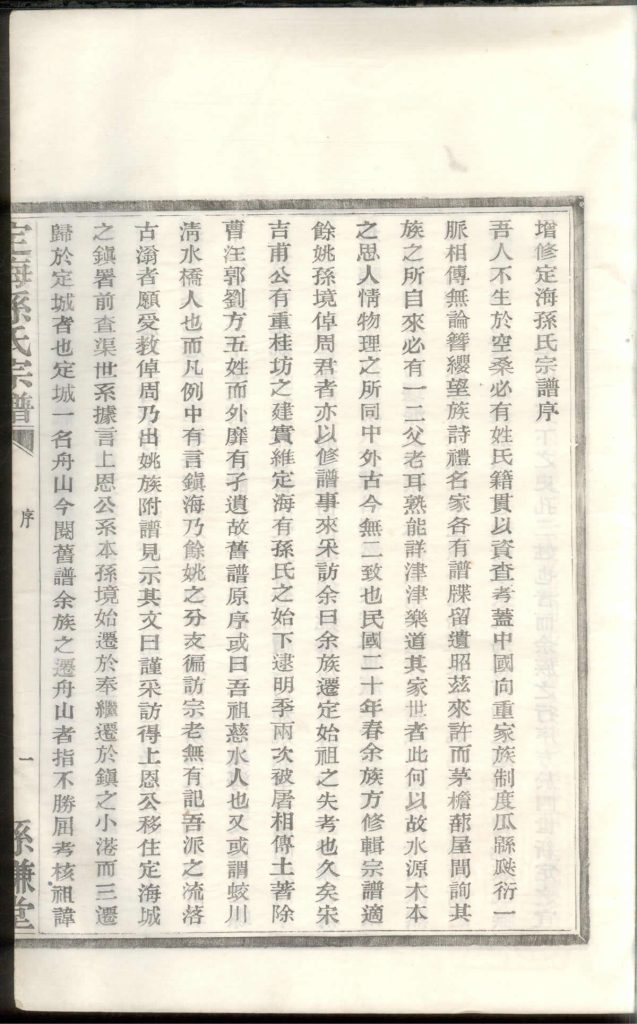 增修定海孫氏宗譜序
吾人不生於空桑必有姓氏籍貫以資查考蓋中國向重家族制度瓜緜瓞衍一
脈相傳無論簪纓望族詩禮名家各有譜牒留遺昭茲來許而茅檐蔀屋間詢其
族之所自來必有一二父老耳熟能詳津津樂道其家世者此何以故水源木本
之思人情物理之所同中外古今無二致也民國二十年春余族方修輯宗譜適
餘姚孫境倬周君者亦以修譜事來采訪余曰余族遷定始祖之失考也久矣宋
吉甫公有重桂坊之建實維定海有孫氏之始下逮明季兩次被屠相傳土著除
曹汪郭劉方五姓而外靡有孑遺故舊譜原序或曰吾祖慈水人也又或謂蛟川
清水橋人也而凡例中有言鎮海乃餘姚之分支徧訪宗老無有記吾派之流落
古滃者願受教倬周乃出姚族附譜見示其文曰謹采訪得上恩公移住定海城
之鎮署前查渠世系據言上恩公系本孫境始遷於奉繼遷於鎮之小港而三遷
歸於定城者也定城一名舟山今閱舊譜余族之遷舟山者指不勝屈考核祖諱
定海孫氏宗譜
序
一
孫謙堂